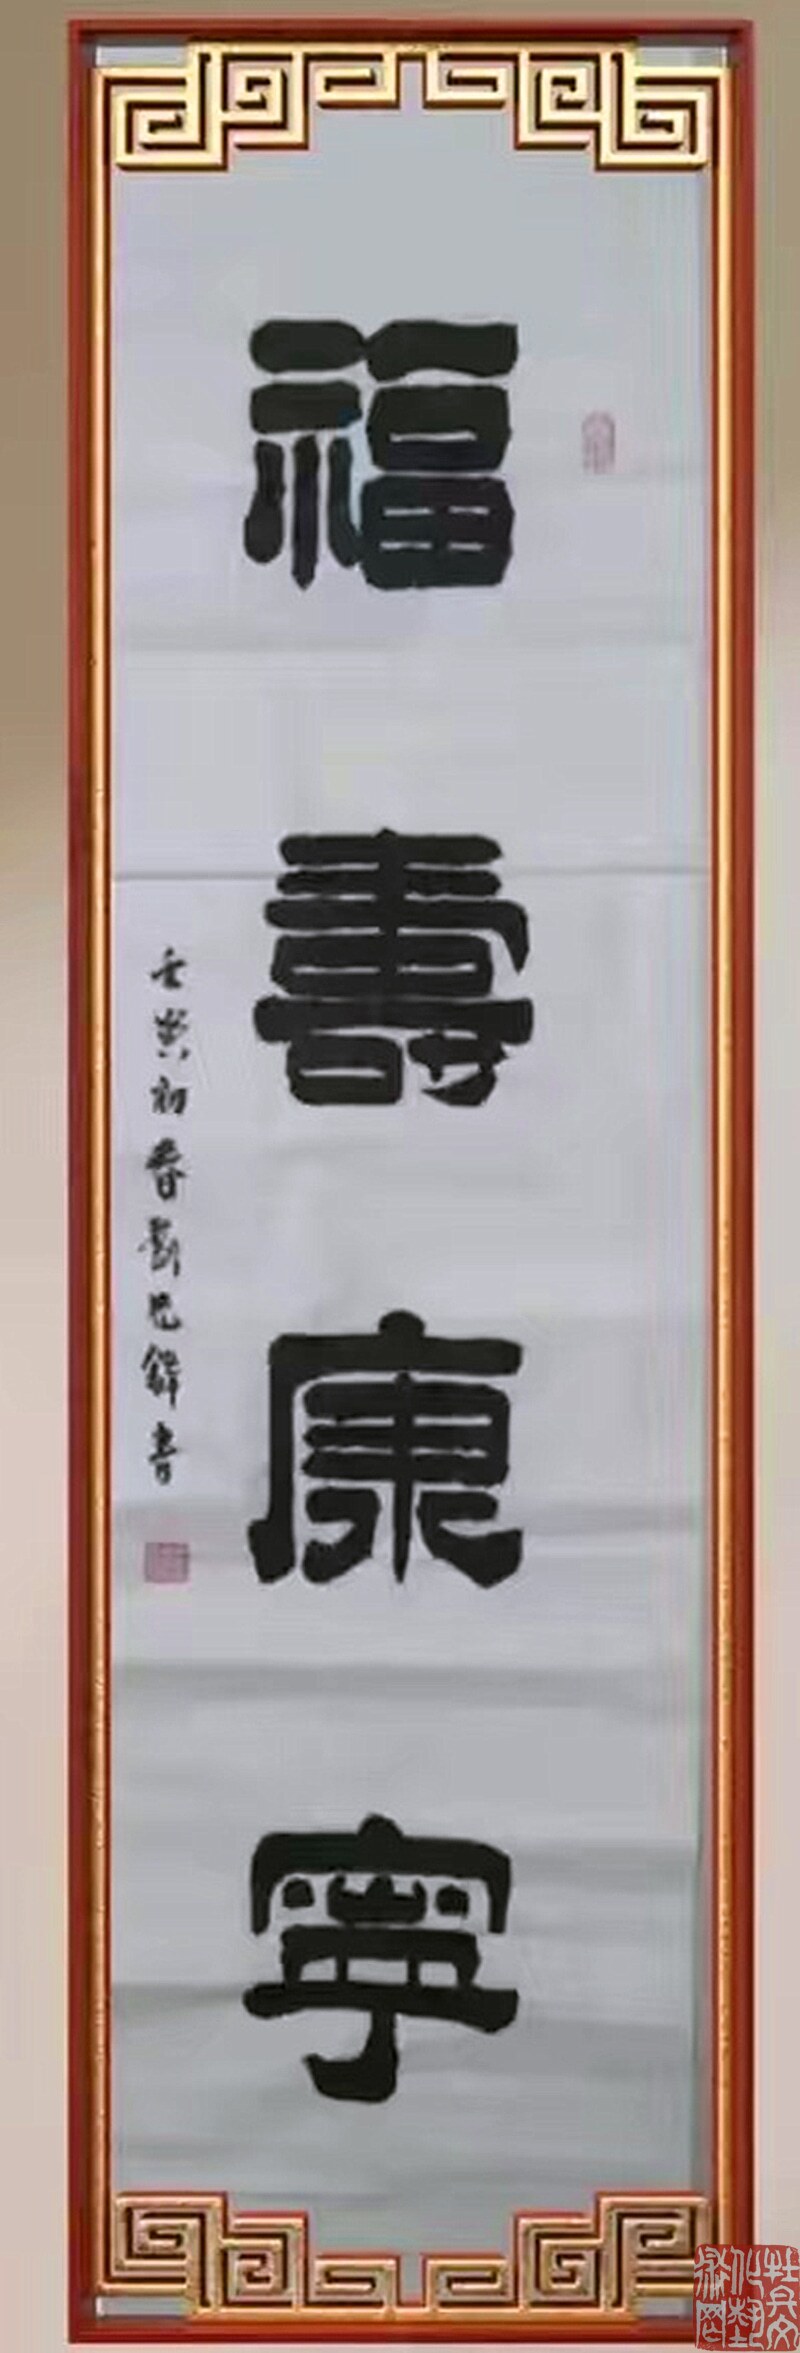 福壽康寧
壬寅初春劉書